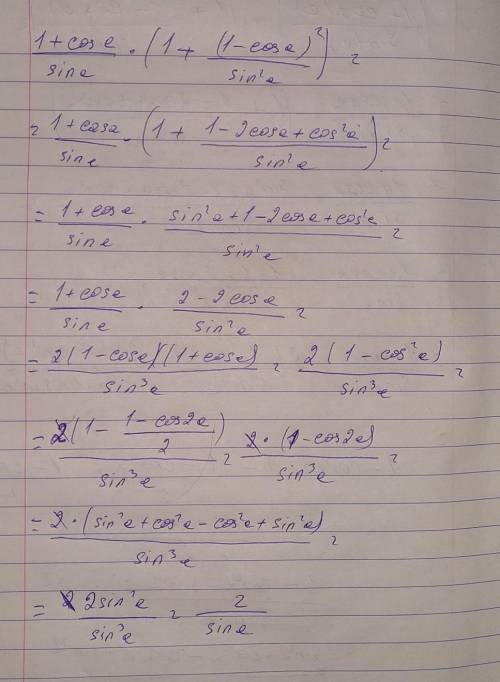 (1+cos a)/(sin a) · (1 + (1-cos a)²/(sin²a)) =
= (1+cos a)/(sin a) · (1 + (1-2cos a+cos²a)/(sin²a)) =
= (1+cos a)/(sin a) · (sin²a+1-2cos a+cos²a)/(sin²a) =
= (1+cos a)/(sin a) · (2-2cos a)/(sin²a) =
= (2(1-cos a)(1+cos a))/(sin³a) = (2(1-cos²a))/(sin³a) =
= (2(1 - (1-cos2a)/2))/(sin³a) = (2·(1-cos2a))/(sin³a) =
= (2·(sin²a+cos²a-cos²a+sin²a))/(sin³a) =
= (2sin²a)/(sin³a) = 2/(sin a)